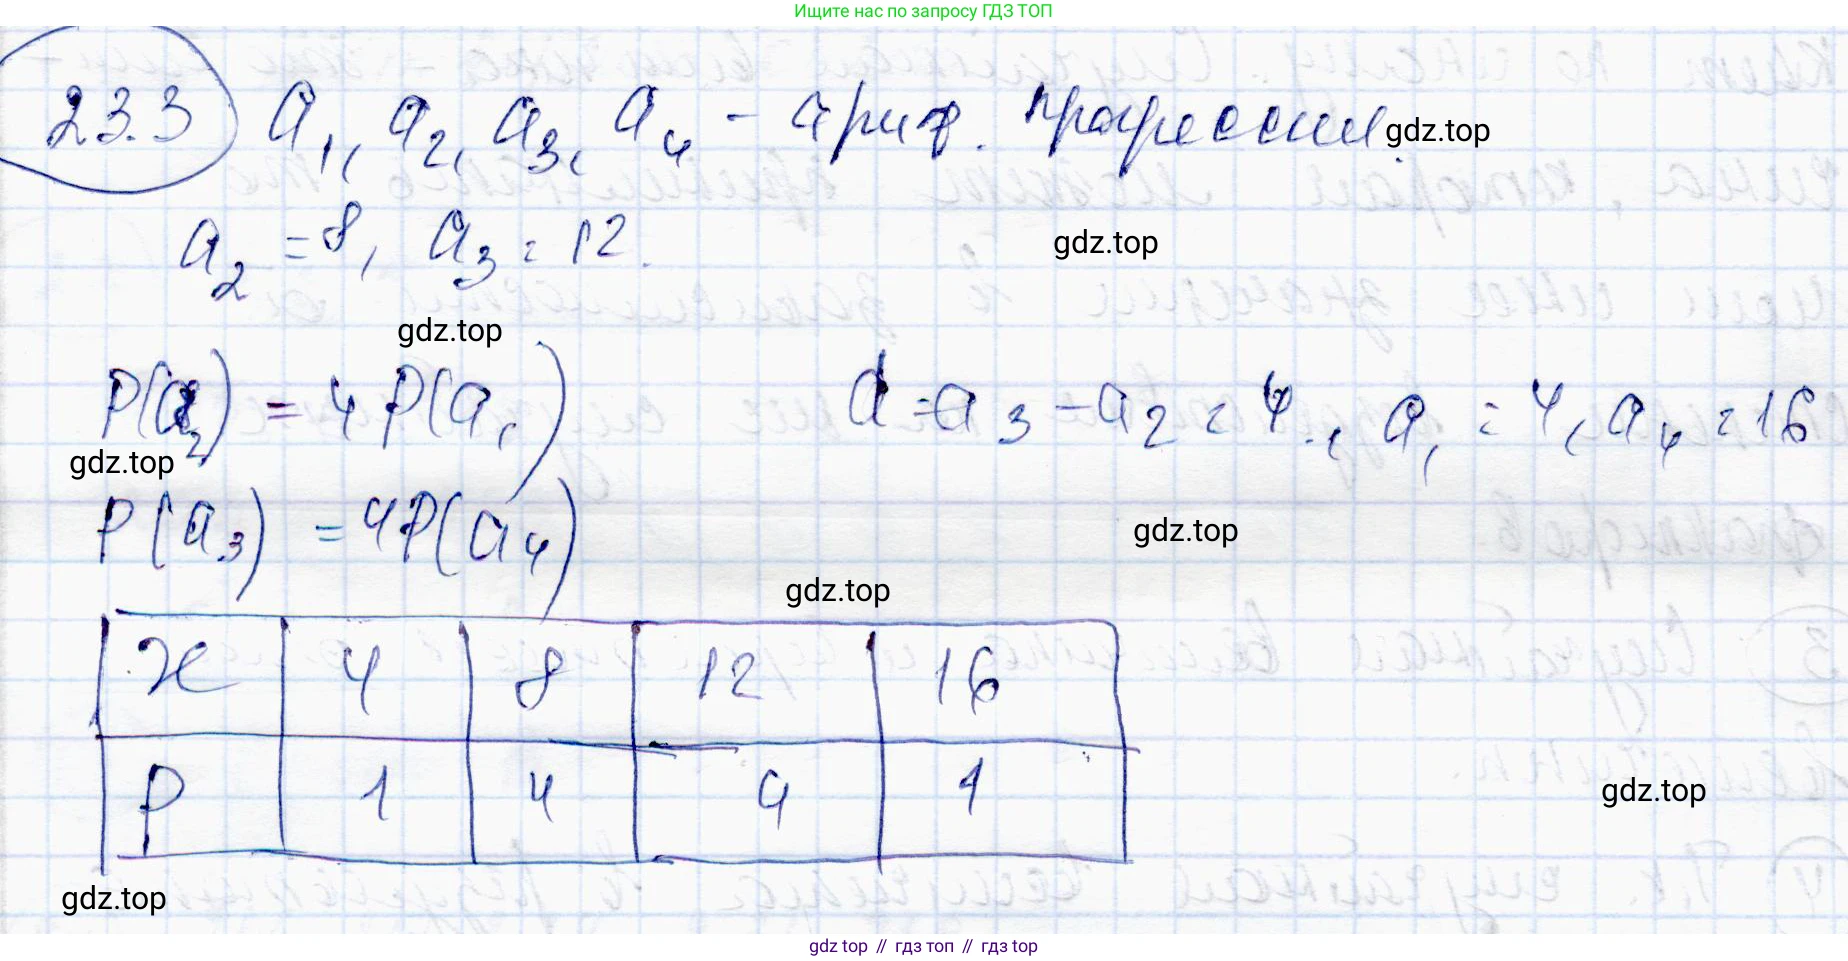 Ищите нас по запросу ГДЗ ТОП
23.3 a₁, a₂, a₃, a₄ - ариф. прогрессия.
gdz.top
a₂ = 8, a₃ = 12.
gdz.top
gdz.top
P(a₂) = 4P(a₁) d = a₃ - a₂ = 4., a₁ = 4, a₄ = 16
gdz.top
P(a₃) = 4P(a₄)
gdz.top
gdz.top
x 4 8 12 16
P 1 4 4 1
gdz.top
gdz.top
gdz top // гдз топ // gdz top